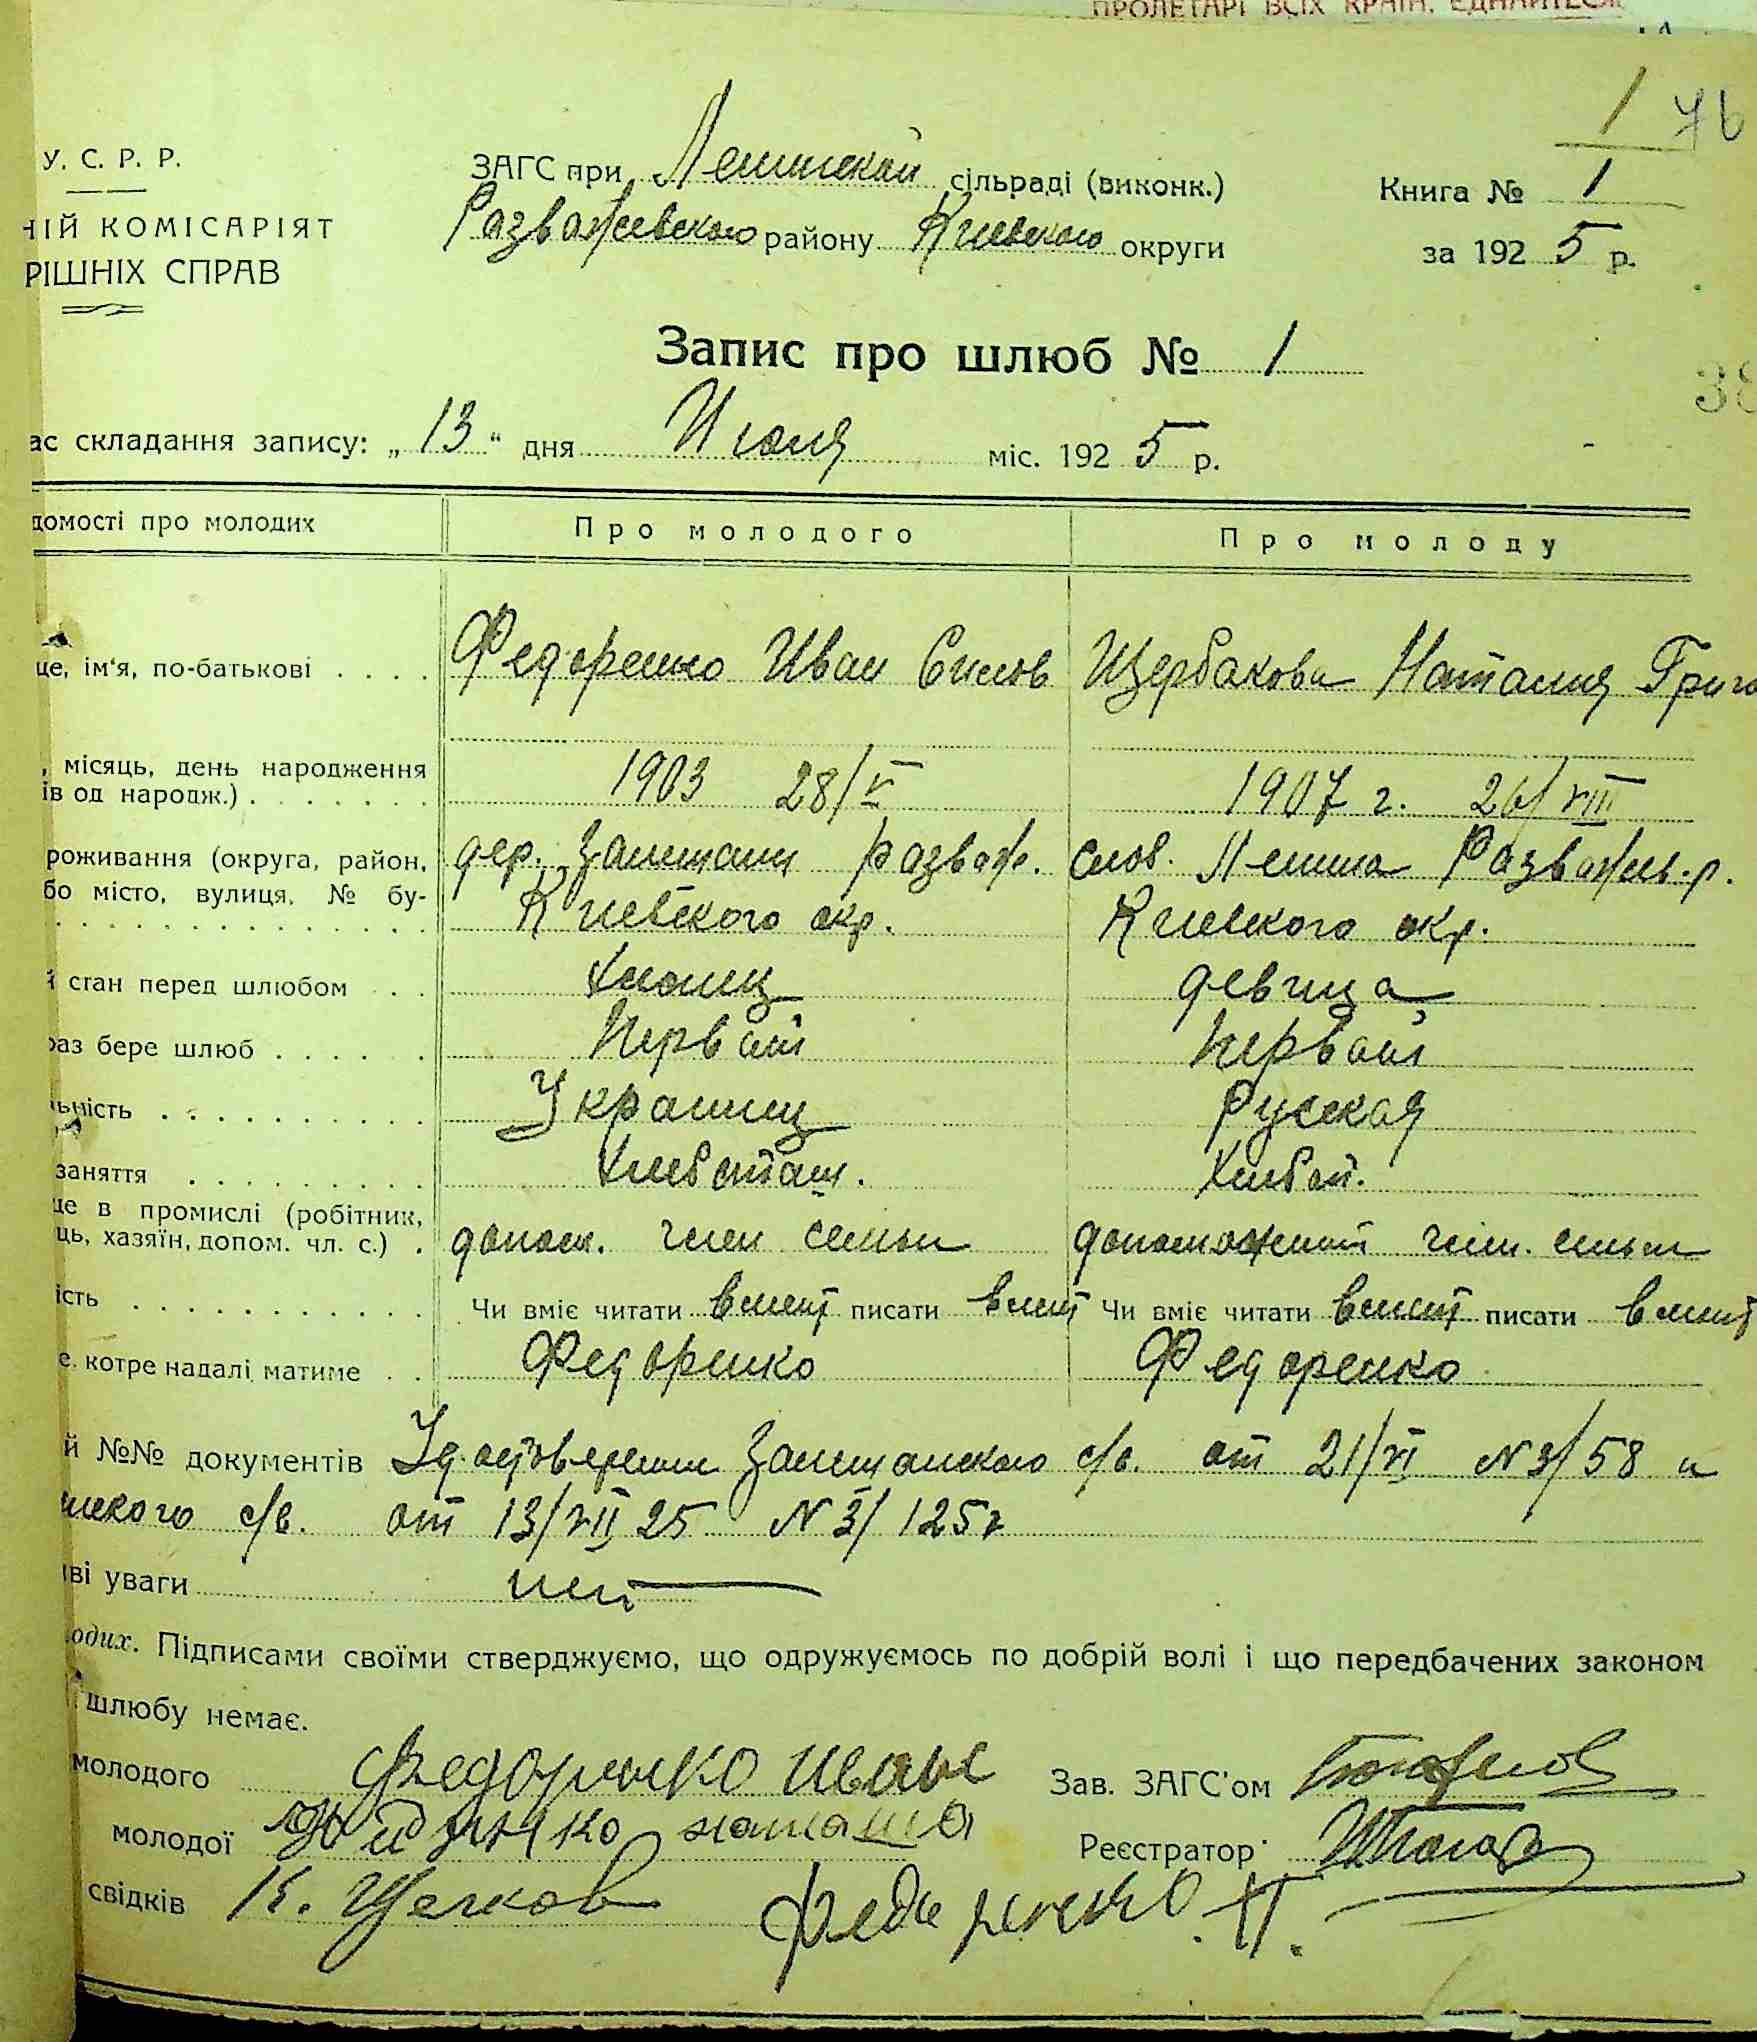 ПРОЛЕТАРІ ВСІХ КРАЇН, ЄДНАЙТЕСЯ
1 76
У. С. Р. Р. ЗАГС при сільраді (виконк.) Книга № 1
НІЙ КОМІСАРІЯТ Разважевского району Киевского округи за 1925 р.
РІШНІХ СПРАВ
Запис про шлюб № 1
38
ас складання запису: „13“ дня Июля міс. 1925 р.
домості про молодих Про молодого Про молоду
це, ім'я, по-батькові Федоренко Иван Силов Щербакова Наталия Григо
, місяць, день народження 1903 28/V 1907 г. 26/VIII
ів од народж.)
роживання (округа, район, дер. Разваж. слов. Ленина Разважев. р.
бо місто, вулиця, № бу- Киевского окр. Киевского окр.
й стан перед шлюбом девица
раз бере шлюб Первый Первый
ьність Украинец Русская
заняття Хлебопаш. Хлебоп.
це в промислі (робітник,
ць, хазяїн, допом. чл. с.) допом. член семьи допоможний член. семьи
ість Чи вміє читати вмеет писати вмеет Чи вміє читати вмеет писати вмеет
е, котре надалі матиме Федоренко Федоренко
й №№ документів Удостоверения с/с. от 21/VI N 3/58 и
нского с/с. от 13/VII 25 N 3/125 г
ві уваги нет
одих. Підписами своїми стверджуємо, що одружуємось по добрій волі і що передбачених законом
шлюбу немає.
молодого Федоренко Иван Зав. ЗАГС'ом
молодої наташа Реєстратор
свідків К. Федоренко П.